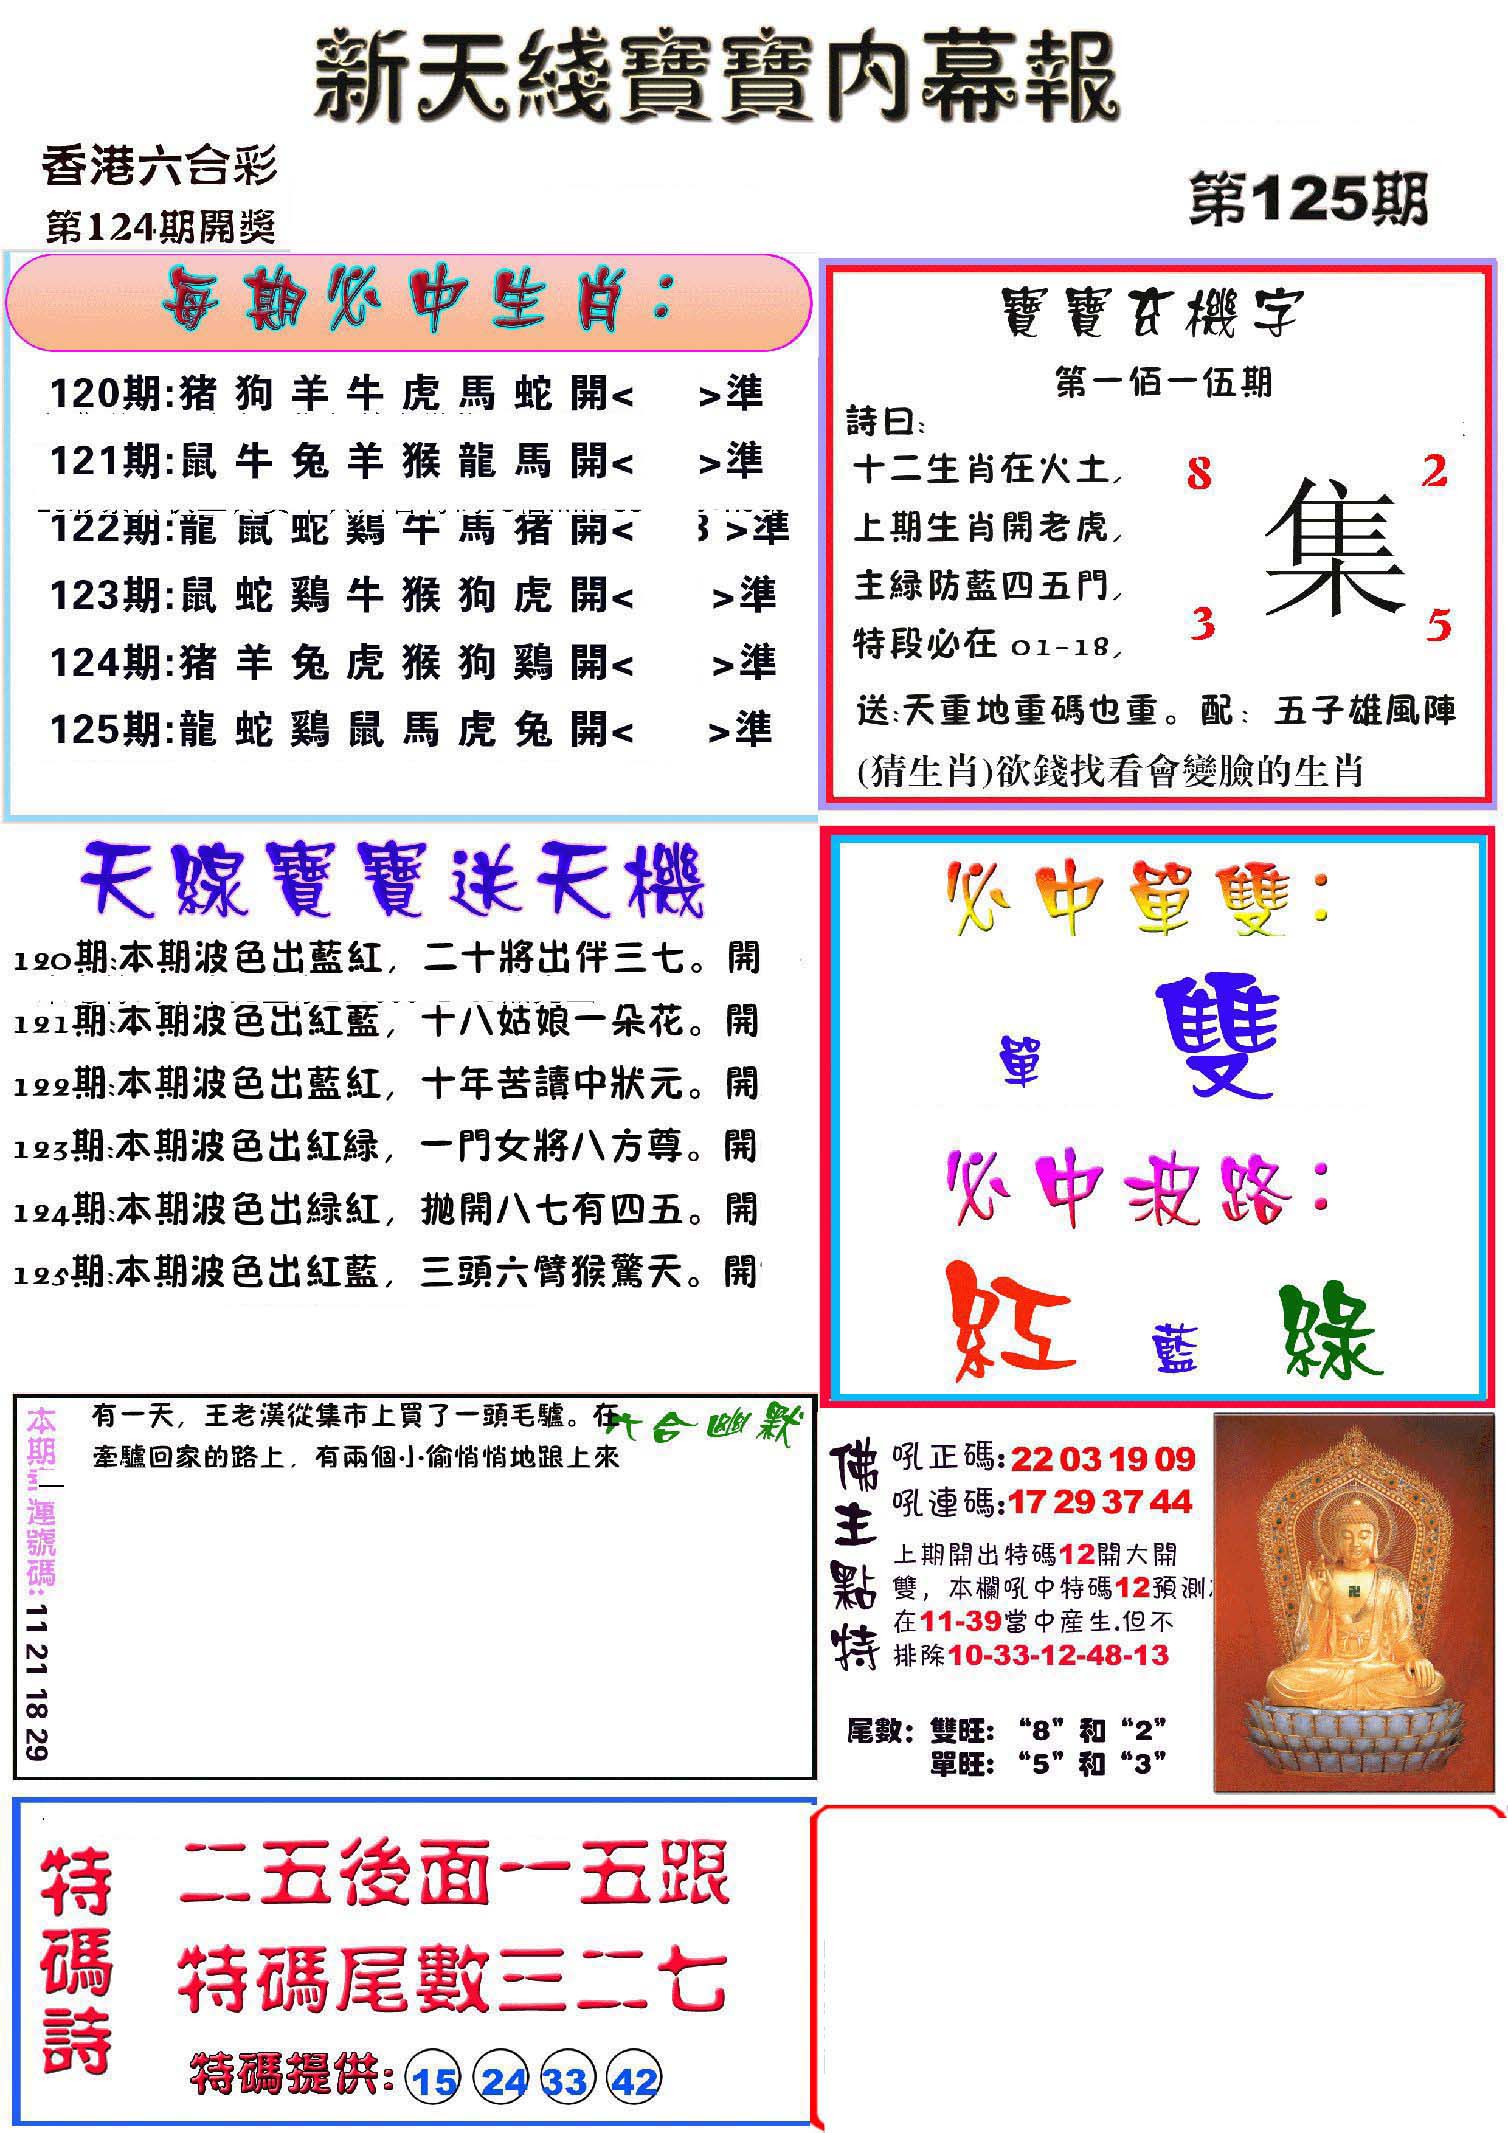 新天綫寶寶内幕報
香港六合彩
第124期開獎
第125期
每期必中生肖：
120期:猪狗羊牛虎馬蛇開< >準
121期:鼠牛兔羊猴龍馬開< >準
122期:龍鼠蛇鷄牛馬猪開< >準
123期:鼠蛇鷄牛猴狗虎開< >準
124期:猪羊兔虎猴狗鷄開< >準
125期:龍蛇鷄鼠馬虎兔開< >準
寶寶玄機字
第一佰一伍期
詩曰:
十二生肖在火土,
上期生肖開老虎,
主緑防藍四五門,
特段必在 01-18,
8 2
集
3 5
送:天重地重碼也重。配：五子雄風陣
(猜生肖)欲錢找看會變臉的生肖
天線寶寶送天機
120期:本期波色出藍紅，二十將出伴三七。開
121期:本期波色出紅藍，十八姑娘一朵花。開
122期:本期波色出藍紅，十年苦讀中狀元。開
123期:本期波色出紅緑，一門女將八方尊。開
124期:本期波色出緑紅，抛開八七有四五。開
125期:本期波色出紅藍，三頭六臂猴驚天。開
必中單雙：
單 雙
必中波路：
紅 藍 綠
六合幽默
有一天，王老漢從集市上買了一頭毛驢。在
牽驢回家的路上，有兩個小偷悄悄地跟上來
本期
運號碼: 11 21 18 29
佛主點特
吼正碼:22 03 19 09
吼連碼:17 29 37 44
上期開出特碼12開大開
雙，本欄吼中特碼12預測
在11-39當中産生.但不
排除10-33-12-48-13
尾數：雙旺：“8”和“2”
單旺：“5”和“3”
特碼詩
二五後面一五跟
特碼尾數三二七
特碼提供: 15 24 33 42